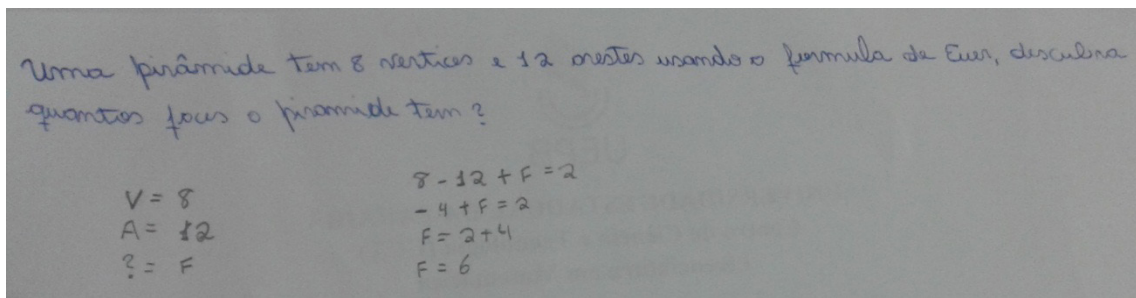 Uma pirâmide tem 8 vertices e 12 arestas usando o formula de Euer, descubra
quantos faces o piramide tem?
V = 8
A = 12
? = F
8 - 12 + F = 2
- 4 + F = 2
F = 2 + 4
F = 6